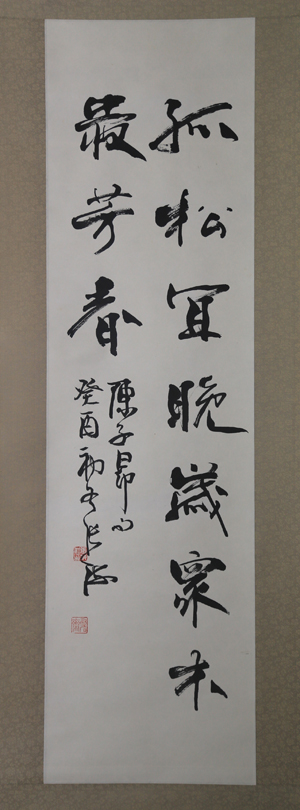 孤松宜晚歲眾木
愛芳春
陳子昂句
癸酉初冬張海